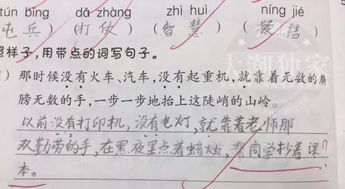 tún bīng dǎ zhàng zhì huì níng jié
(屯兵) (打仗) (智慧) (凝结)
样子,用带点的词写句子。
)那时候没有火车、汽车,没有起重机,就靠着无数的肩
膀无数的手,一步一步地抬上这陡峭的山岭。
以前没有打印机,没有电灯,就靠着老师那
双勤劳的手,在黑夜里点着蜡烛,帮同学抄着课
本。